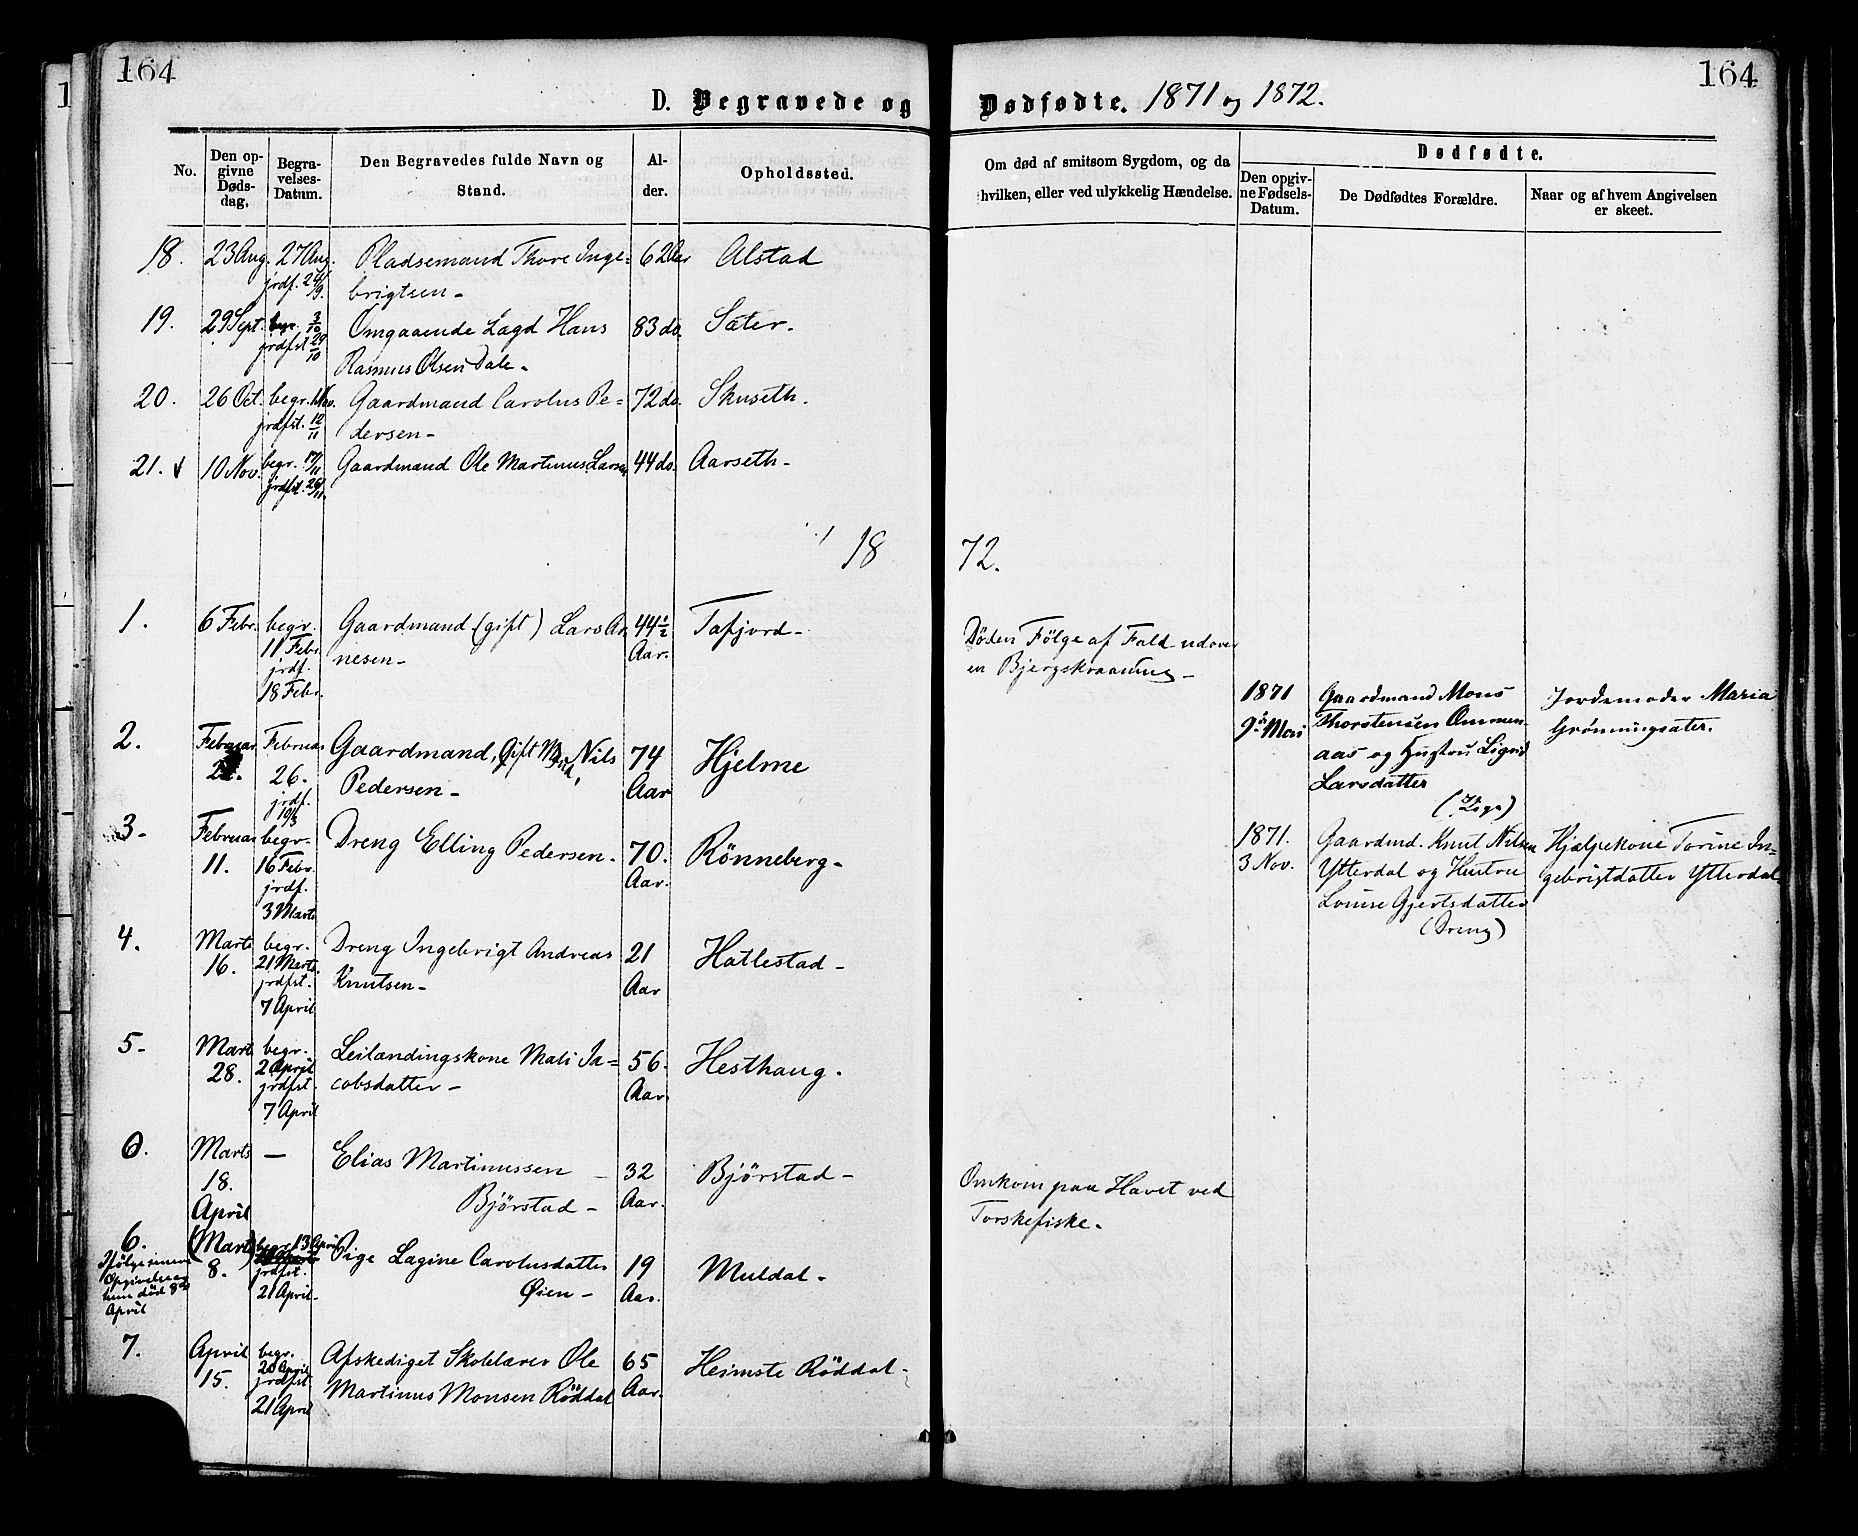 164
D. Begravede og Dødfødte. 1871 og 1872.
164
No.
Den op-
givne
Døds-
dag.
Begra-
velses-
Datum.
Den Begravedes fulde Navn og
Stand.
Al-
der.
Opholdssted.
Om død af smitsom Sygdom, og da
hvilken, eller ved ulykkelig Hændelse.
Dødfødte.
Den opgiv-
ne Fødsels-
Datum.
De Dødfødtes Forældre.
Naar og af hvem Angivelsen
er skeet.
18. 23 Aug. 27 Aug. Pladsemand Thore Inge= 62 Aar Alstad
jrdf. 24/9. brigtsen -
19. 29 Sept. begr. 3/10 Omgaaende Lægd Hans 83 do. Sæter.
jrdfst 29/10 Rasmus Olsen Dale -
20. 26 Oct. begr. 1 Nov. Gaardmand Carolus Pe= 72 do. Skuseth.
jrdfst. 12/11 dersen -
21. 10 Nov. begr. 17/11 Gaardmand Ole Martinus Larsen 44 do. Aarseth -
jrdfst. 26/11.
1872.
1. 6 Febr. begr. Gaardmand (gift) Lars Ar 44 1/2 Tafjord - Døden Følge af Fald udover
11 Febr. nesen - Aar. en Bjergskraaning -
jrdf.
18 Febr.
1871 Gaardmand Mons Jordemoder Maria
9de Mai Thorstensen Ommen- Grønningsæter.
aas og Hustru Sigrid
Larsdatter
(Pige)
2. Februar Februar Gaardmand, Gift Mand, Nils 74 Hjelme
26. Pedersen - Aar
jrdf.
10/3
3. Februar begr- Dreng Elling Pedersen - 70. Rønneberg -
11. 16 Febr. Aar.
jrdf.
3 Marts
1871. Gaardmd. Knut Nilsen Hjælpekone Torine In=
3 Nov. Ytterdal og Hustru gebrigtdatter Ytterdal
Louise Gjertsdatter
(Dreng)
4. Marts begr. Dreng Ingebrigt Andreas 21 Hatlestad -
16. 21 Marts. Knutsen - Aar
jrdfst.
7 April
5. Mart begr. Leilændingskone Mali Ja= 56. Hesthaug.
28. 2 April cobsdatter - Aar.
jrdfst.
7 April
6. Marts — Elias Martinussen 32 Bjørstad - Omkom paa Havet ved
18. Bjørstad - Aar. Torskefiske.
April
6. (Mart) begr. 13 April Pige Lagine Carolusdatter 19 Muldal -
8. jrdfst. Øien - Aar.
21 April -
Ifølge senere
Opgivelse er
hun død 8de
April
7. April begr. Afskediget Skolelærer Ole 65 Heimste Røddal -
15. 20 April Martinus Monsen Røddal Aar.
jrdfst
21 April